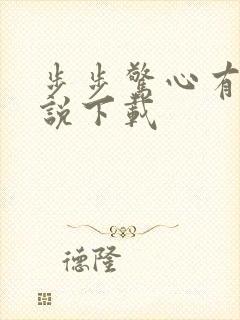 步步驚心有
說下載
德隆